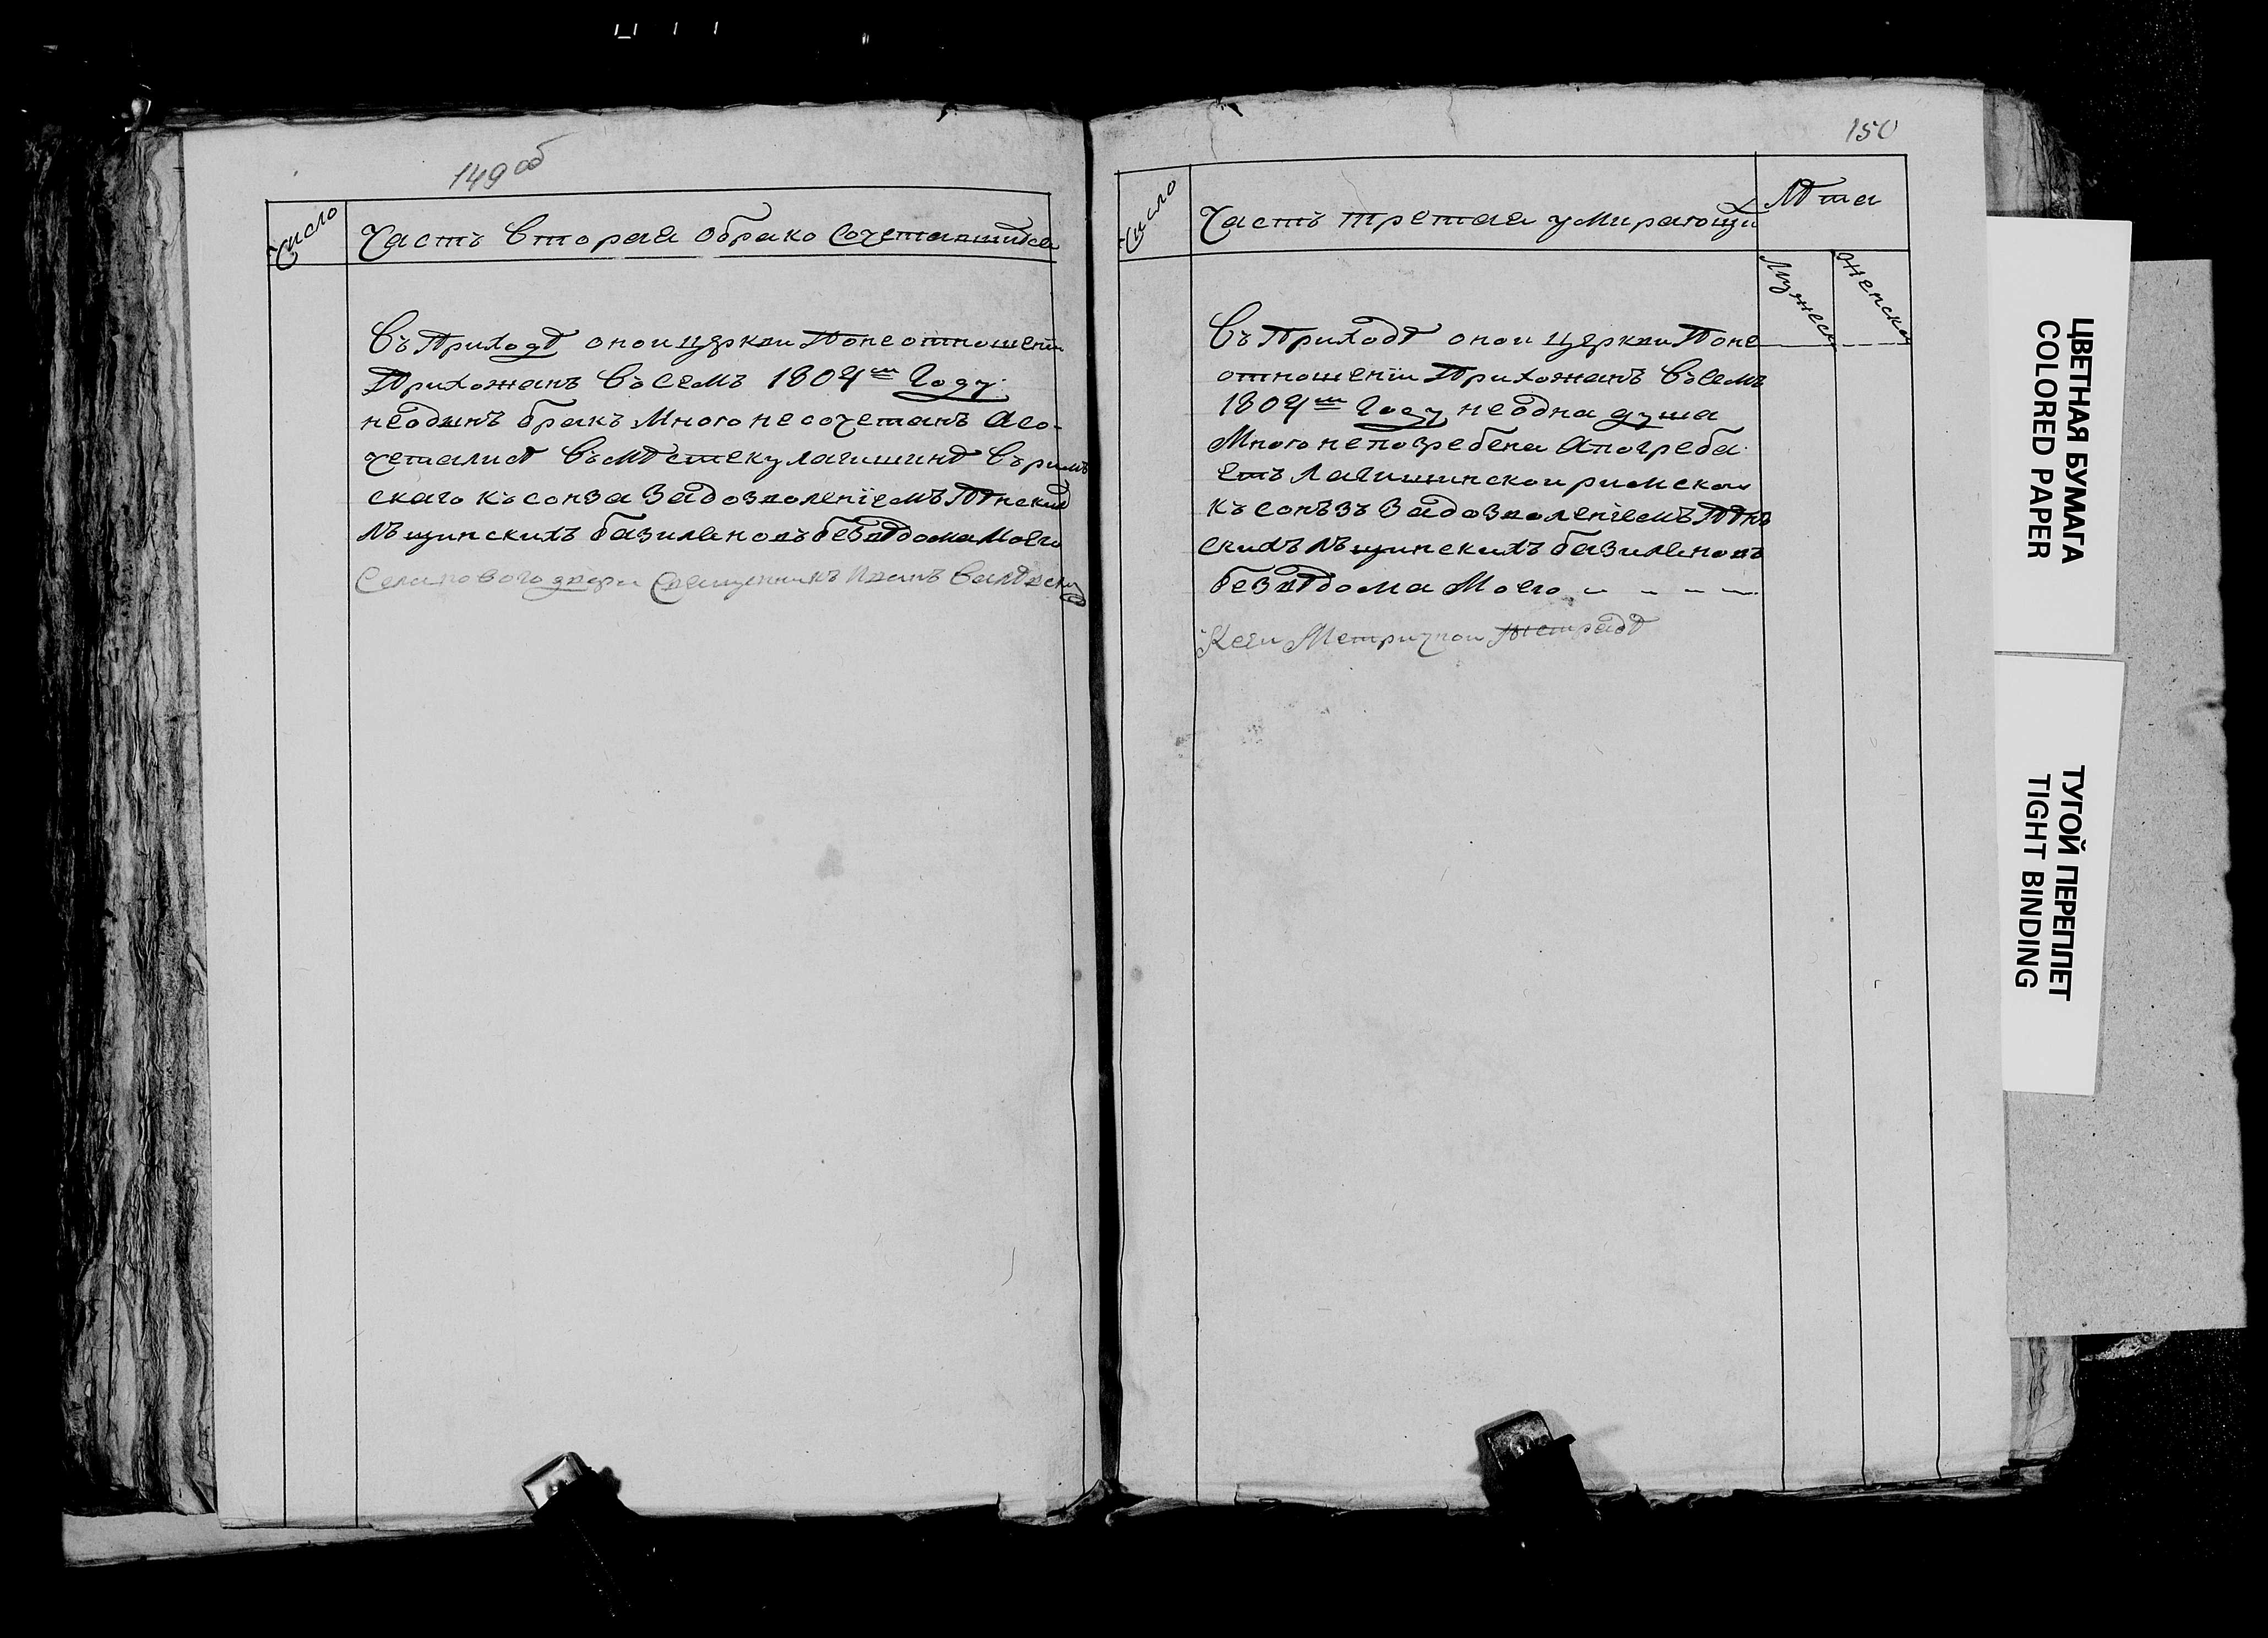 149 об
Число
Часть вторая обрако сочетавшихся
Въ Приходѣ онои церкви Поне отношенїи
Прихожанъ Въ семъ 1804 м Году
неодинъ бракъ Мною не сочетанъ а со-
четались въ мѣстеку лагишинѣ въ рим
скаго ксонза за дозволенїемъ Пѣнских
лѣщинскихъ базилиановъ без вѣдома Моего
Села нового двора Священникъ Иванъ
150
Число
Часть третая умирающих
Лѣта
Мужеск
женска
Въ Приходѣ онои церкви Поне
отношенїи Прихожанъ Въ семъ
1804 м Году неодна душа
Мною не погребена а погреба
етъ Лагишинскои римскои
ксонъзъ за дозволенїемъ Пѣн
скихъ лѣщинскихъ базилиановъ
без вѣдома Моего
К сеи Метричнои тетрадѣ
ЦВЕТНАЯ БУМАГА
COLORED PAPER
ТУГОЙ ПЕРЕПЛЕТ
TIGHT BINDING